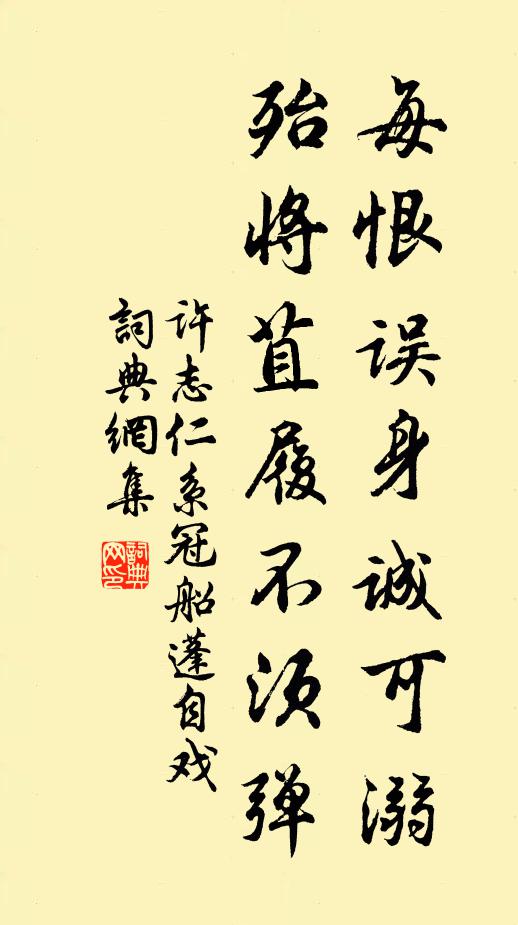 每恨误身诚可溺
殆将苴履不须弹
许志仁系冠船蓬自戏
詞典網集
詞典网印